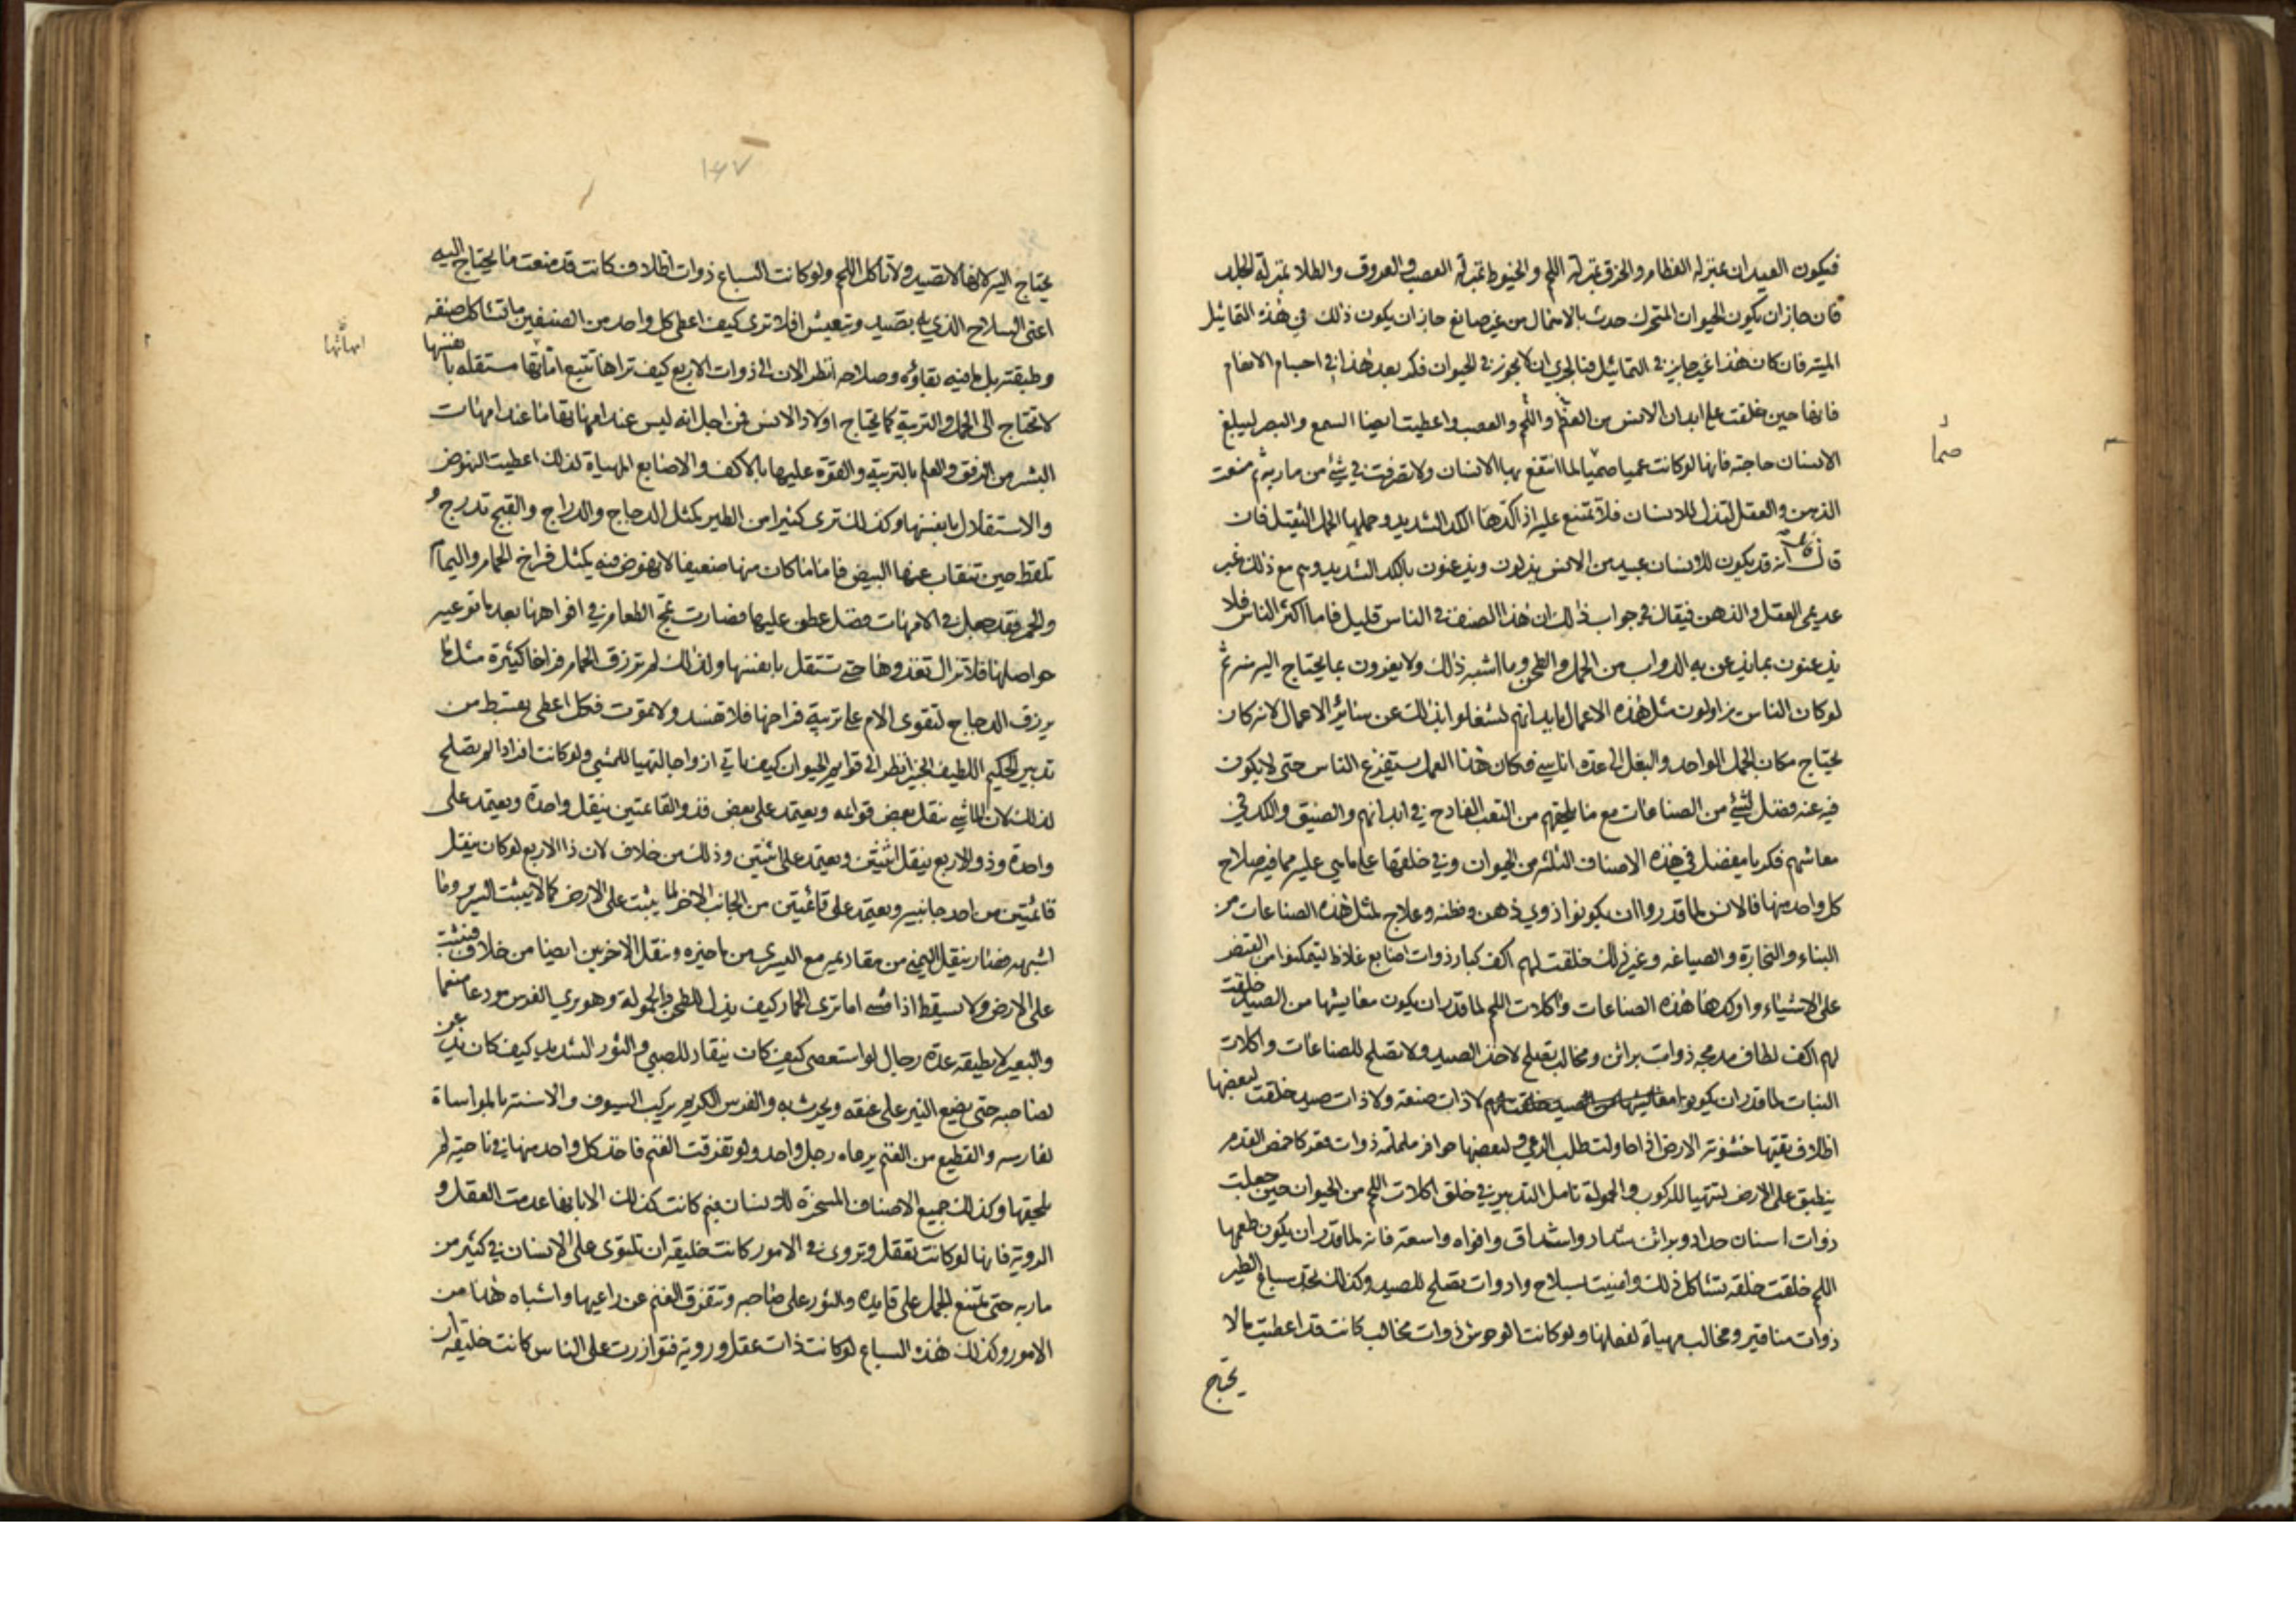 فيكون العيدان بمنزلة العظام والخرق بمنزلة اللحم والخيوط بمنزلة العصب والعروق والطلا بمنزلة الجلد
فان جاز ان يكون الحيوان المتحرك حدث بالاهمال من غير صانع جاز ان يكون ذلك في هذه التماثيل
الميته فان كان هذا غير جايز في التماثيل فبالحري ان لا يجوز في الحيوان فكر بعد هذا في اجسام الانعام
فانها حين خلقت على ابدان الانس من العظم واللحم والعصب واعطيت ايضا السمع والبصر ليبلغ
الانسان حاجته فانها لو كانت عميا صما لما انتفع بها الانسان ولا تصرفت في شئ من ماربه ثم منعت
صما
الذهن والعقل لتذل للانسان فلا تمتنع عليه اذا كدها الكد الشديد وحملها الحمل الثقيل فان
قال قائل انه قد يكون للانسان عبيد من الانس يذلون ويذعنون بالكد الشديد وهم مع ذلك غير
عديمي العقل والذهن فيقال في جواب ذلك ان هذا الصنف في الناس قليل فاما اكثر الناس فلا
يذعنون بما يذعن به الدواب من الحمل والطحن وما اشبه ذلك ولا يغرون بما يحتاج اليه منه ثم
لو كان الناس يزاولون مثل هذه الاعمال بابدانهم لشغلوا بذلك عن سائر الاعمال لانه كان
يحتاج مكان الجمل الواحد والبغل الى عدة اناسي فكان هذا العمل يستفرغ الناس حتى لا يكون
فيه عنه فضل لشئ من الصناعات مع ما يلحقهم من التعب الفادح في ابدانهم والضيق والكد في
معاشهم فكر يا مفضل في هذه الاصناف الثلثه من الحيوان وفي خلقها على ما هي عليه مما فيه صلاح
كل واحد منها فالانس لما قدروا ان يكونوا ذوي ذهن وفطنه وعلاج لمثل هذه الصناعات من
البناء والنجارة والصياغه وغير ذلك خلقت لهم اكف كبار ذوات اصابع غلاظ ليتمكنوا من القبض
على الاشياء واوكدها هذه الصناعات واكلات اللحم لما قدر ان يكون معايشها من الصيد خلقت
لهم اكف لطاف مدمجه ذوات براثن ومخالب تصلح لاخذ الصيد ولا تصلح للصناعات واكلات
النبات لما قدر ان يكونوا لا ذات صنعه ولا ذات صيد خلقت لبعضها
اظلاف تقيها خشونة الارض اذا حاولت طلب الرعي ولبعضها حوافر ململمة ذوات قعر كاخمص القدم
ينطبق على الارض لتتهيا للركوب والحمولة تامل التدبير في خلق اكلات اللحم من الحيوان حين جعلت
ذوات اسنان حداد وبراثن شداد واشداق وافواه واسعة فانه لما قدر ان يكون طعمها
اللحم خلقت خلقه تشاكل ذلك واعينت بسلاح وادوات تصلح للصيد وكذلك تجد سباع الطير
ذوات مناقير ومخالب مهياة لفعلها ولو كانت الوحوش ذوات مخالب كانت قد اعطيت ما لا
يحتاج
١٤٧
يحتاج اليه لانها لا تصيد ولا تاكل اللحم ولو كانت السباع ذوات اظلاف كانت قد منعت ما يحتاج اليه
اعني السلاح الذي به تصيد وتعيش افلا ترى كيف اعطى كل واحد من الصنفين ما تشاكل صنفه
وطبقته بل ما فيه بقاؤه وصلاحه انظر الان الى ذوات الاربع كيف تراها تتبع اماتها مستقله بانفسها
امهاتها
لا تحتاج الى الحمل والتربية كما يحتاج اولاد الانس فمن اجل انه ليس عند امهاتها ما عند امهات
البشر من الرفق والعلم بالتربية والقوة عليها بالاكف والاصابع المهياة لذلك اعطيت النهوض
والاستقلال بانفسها وكذلك ترى كثيرا من الطير كمثل الدجاج والدراج والقبج تدرج و
تلقط حين تنقاب عنها البيض فاما ما كان منها ضعيفا لا نهوض فيه كمثل فراخ الحمام واليمام
والحمر فقد جعل في الامهات فضل عطف عليها فصارت تمج الطعام في افواهها بعد ما توعيه
حواصلها فلا تزال تغذوها حتى تستقل بانفسها ولذلك لم ترزق الحمام فراخا كثيرة مثل ما
يرزق الدجاج لتقوى الام على تربية فراخها فلا تفسد ولا تموت فكل اعطى بقسط من
تدبير الحكيم اللطيف الخبير انظر الى قوايم الحيوان كيف تاتي ازواجا لتتهيا للمشي ولو كانت افرادا لم تصلح
لذلك لان الماشي ينقل بعض قوائمه ويعتمد على بعض فذو القائمتين ينقل واحدة ويعتمد على
واحدة وذو الاربع ينقل اثنتين ويعتمد على اثنتين وذلك من خلاف لان ذا الاربع لو كان ينقل
قائمتين من احد جانبيه ويعتمد على قائمتين من الجانب الاخر لما يثبت على الارض كما لا يثبت السرير وما
اشبهه فصار ينقل اليمنى من مقاديمه مع اليسرى من ماخيره وينقل الاخريين ايضا من خلاف فيثبت
على الارض ولا يسقط اذا مشى اما ترى الحمار كيف يذل للطحن والحمولة وهو يرى الفرس مودعا منعما
والبعير لا يطيقه عدة رجال لو استعصى كيف كان ينقاد للصبي والثور الشديد كيف كان يذعن
لصاحبه حتى يضع النير على عنقه ويحرث به والفرس الكريم يركب السيوف والاسنة بالمواساة
لفارسه والقطيع من الغنم يرعاه رجل واحد ولو تفرقت الغنم فاخذ كل واحد منها في ناحية لم
يلحقها وكذلك جميع الاصناف المسخرة للانسان فبم كانت كذلك الا بانها عدمت العقل و
الروية فانها لو كانت تعقل وتروى في الامور كانت خليقه ان تلتوى على الانسان في كثير من
ماربه حتى يمتنع الجمل على قايده والثور على صاحبه وتتفرق الغنم عن راعيها واشباه هذا من
الامور وكذلك هذه السباع لو كانت ذات عقل وروية فتوازرت على الناس كانت خليقه ان